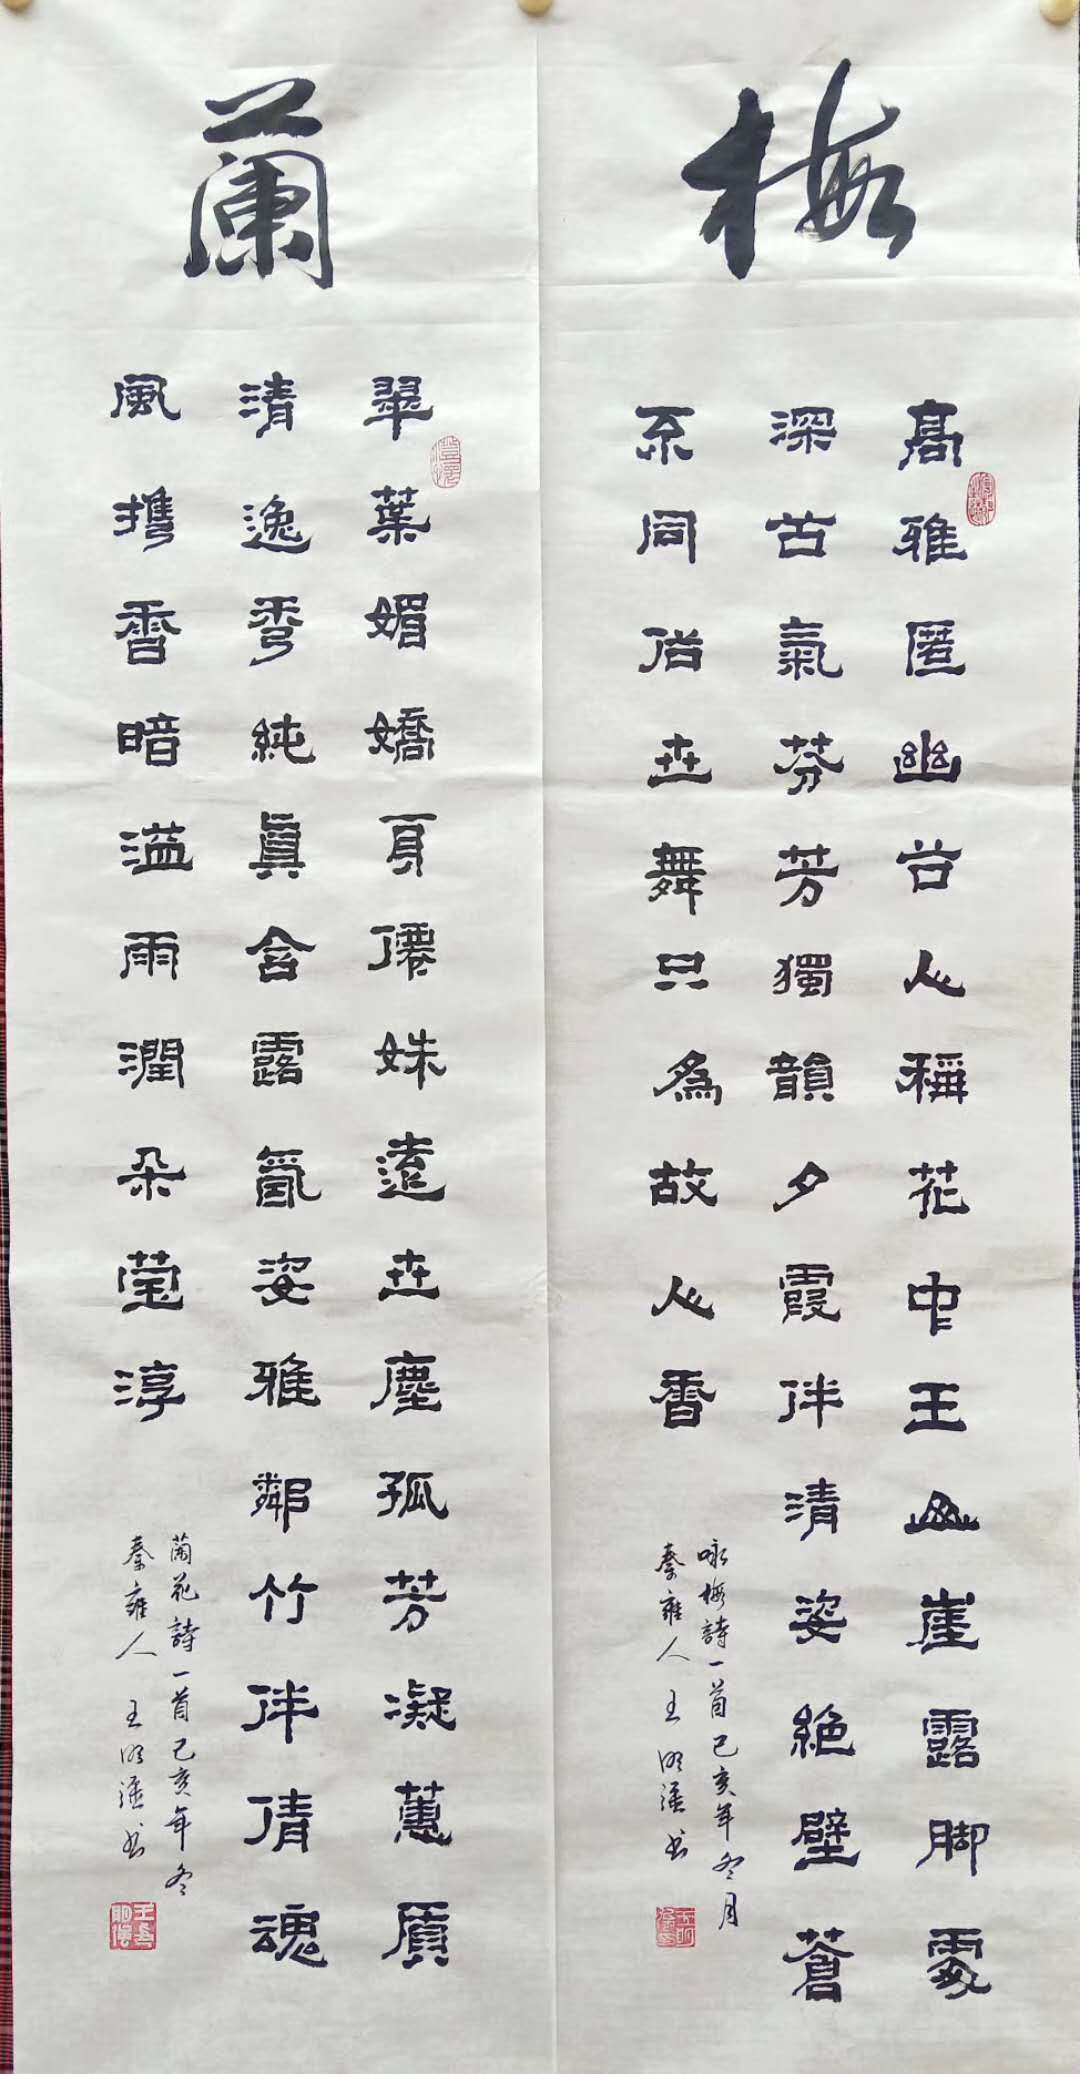 梅
高雅匿幽谷人稱花中王山崖露脚處
深谷氣芬芳獨韻夕霞伴清姿絶壁蒼
不同俗世舞只為故人香
咏梅詩一首己亥年冬月
秦雍人王明强书
蘭
翠葉媚嬌身僊姝遠世塵孤芳凝蕙質
清逸秀純真含露氤姿雅鄰竹伴倩魂
風攜香暗溢雨潤朵瑩淳
蘭花詩一首己亥年冬
秦雍人王明强书